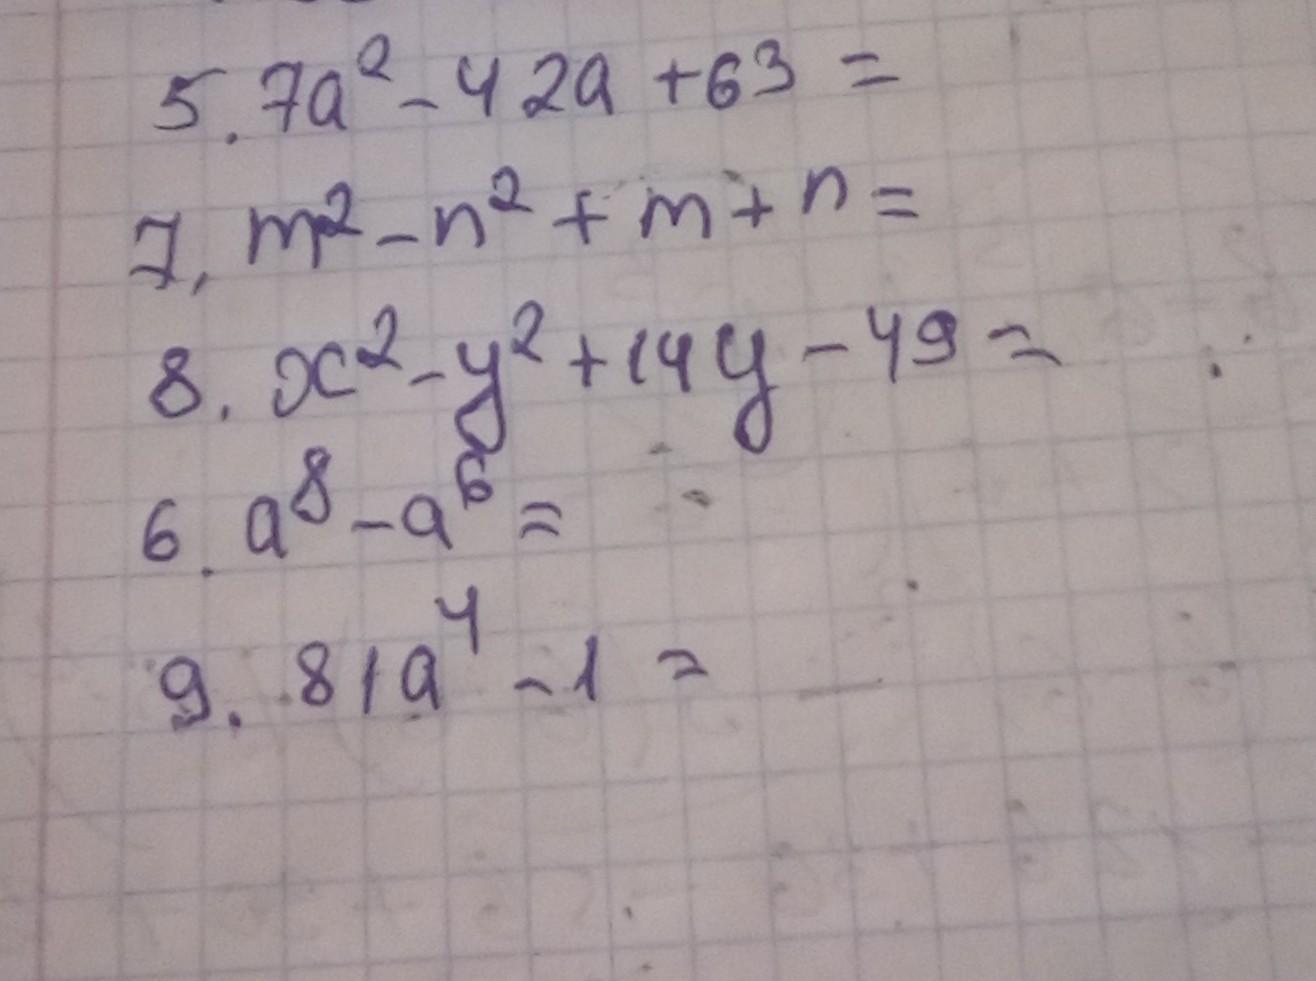 5. 7a² - 42a + 63 =
7. m² - n² + m + n =
8. x² - y² + 14y - 49 =
6. a⁸ - a⁶ =
9. 81a⁴ - 1 =